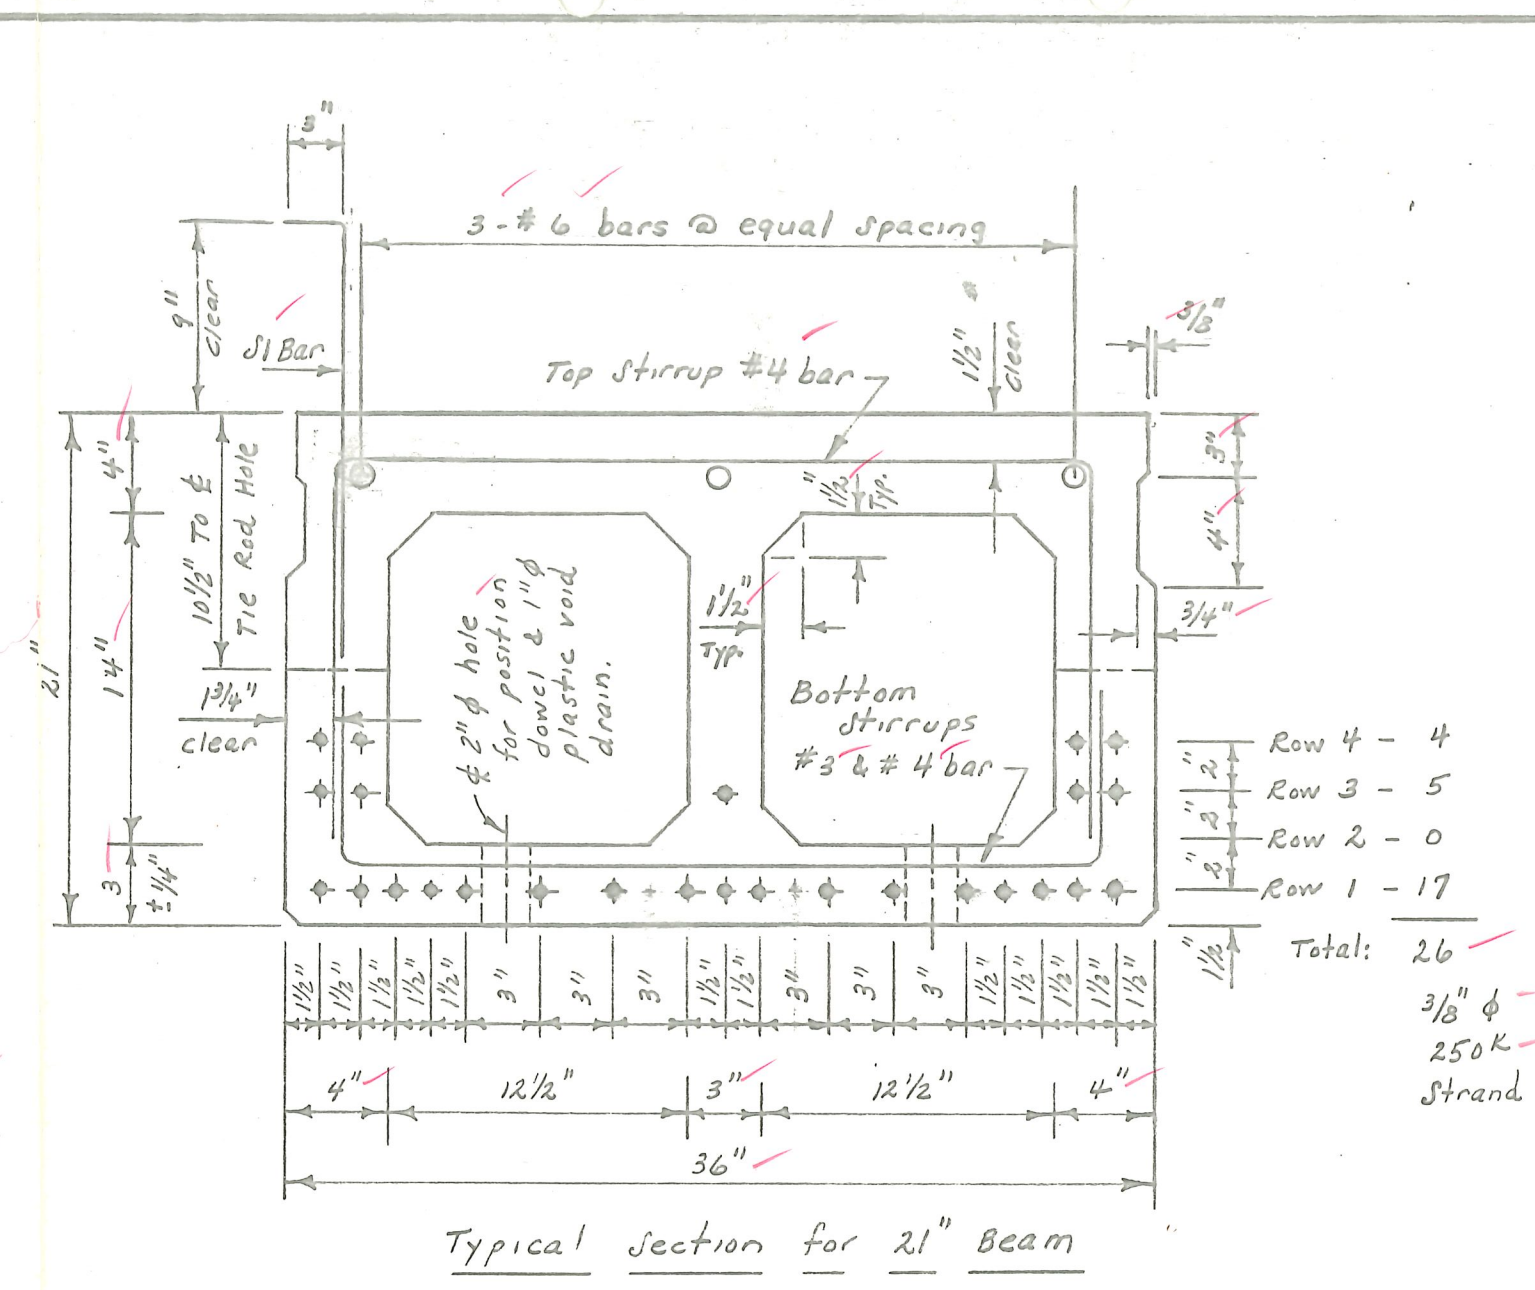 3"
3-#6 bars @ equal spacing
9"
clear
S1 Bar
Top Stirrup #4 bar
1½"
clear
3/8"
21"
4"
14"
3
± ¼"
10½" To ℄
Tie Rod Hole
1¾"
clear
℄ 2" ϕ hole
for position
dowel & 1" ϕ
plastic void
drain.
1½"
Typ.
1½"
Typ.
Bottom
Stirrups
#3 & #4 bar
3"
4"
3/4"
2"
2"
2"
1½"
Row 4 - 4
Row 3 - 5
Row 2 - 0
Row 1 - 17
Total: 26
3/8" ϕ
250K
Strand
1½" 1½" 1½" 1½" 1½" 3" 3" 3" 1½" 1½" 3" 3" 3" 1½" 1½" 1½" 1½" 1½"
4" 12½" 3" 12½" 4"
36"
Typical Section for 21" Beam